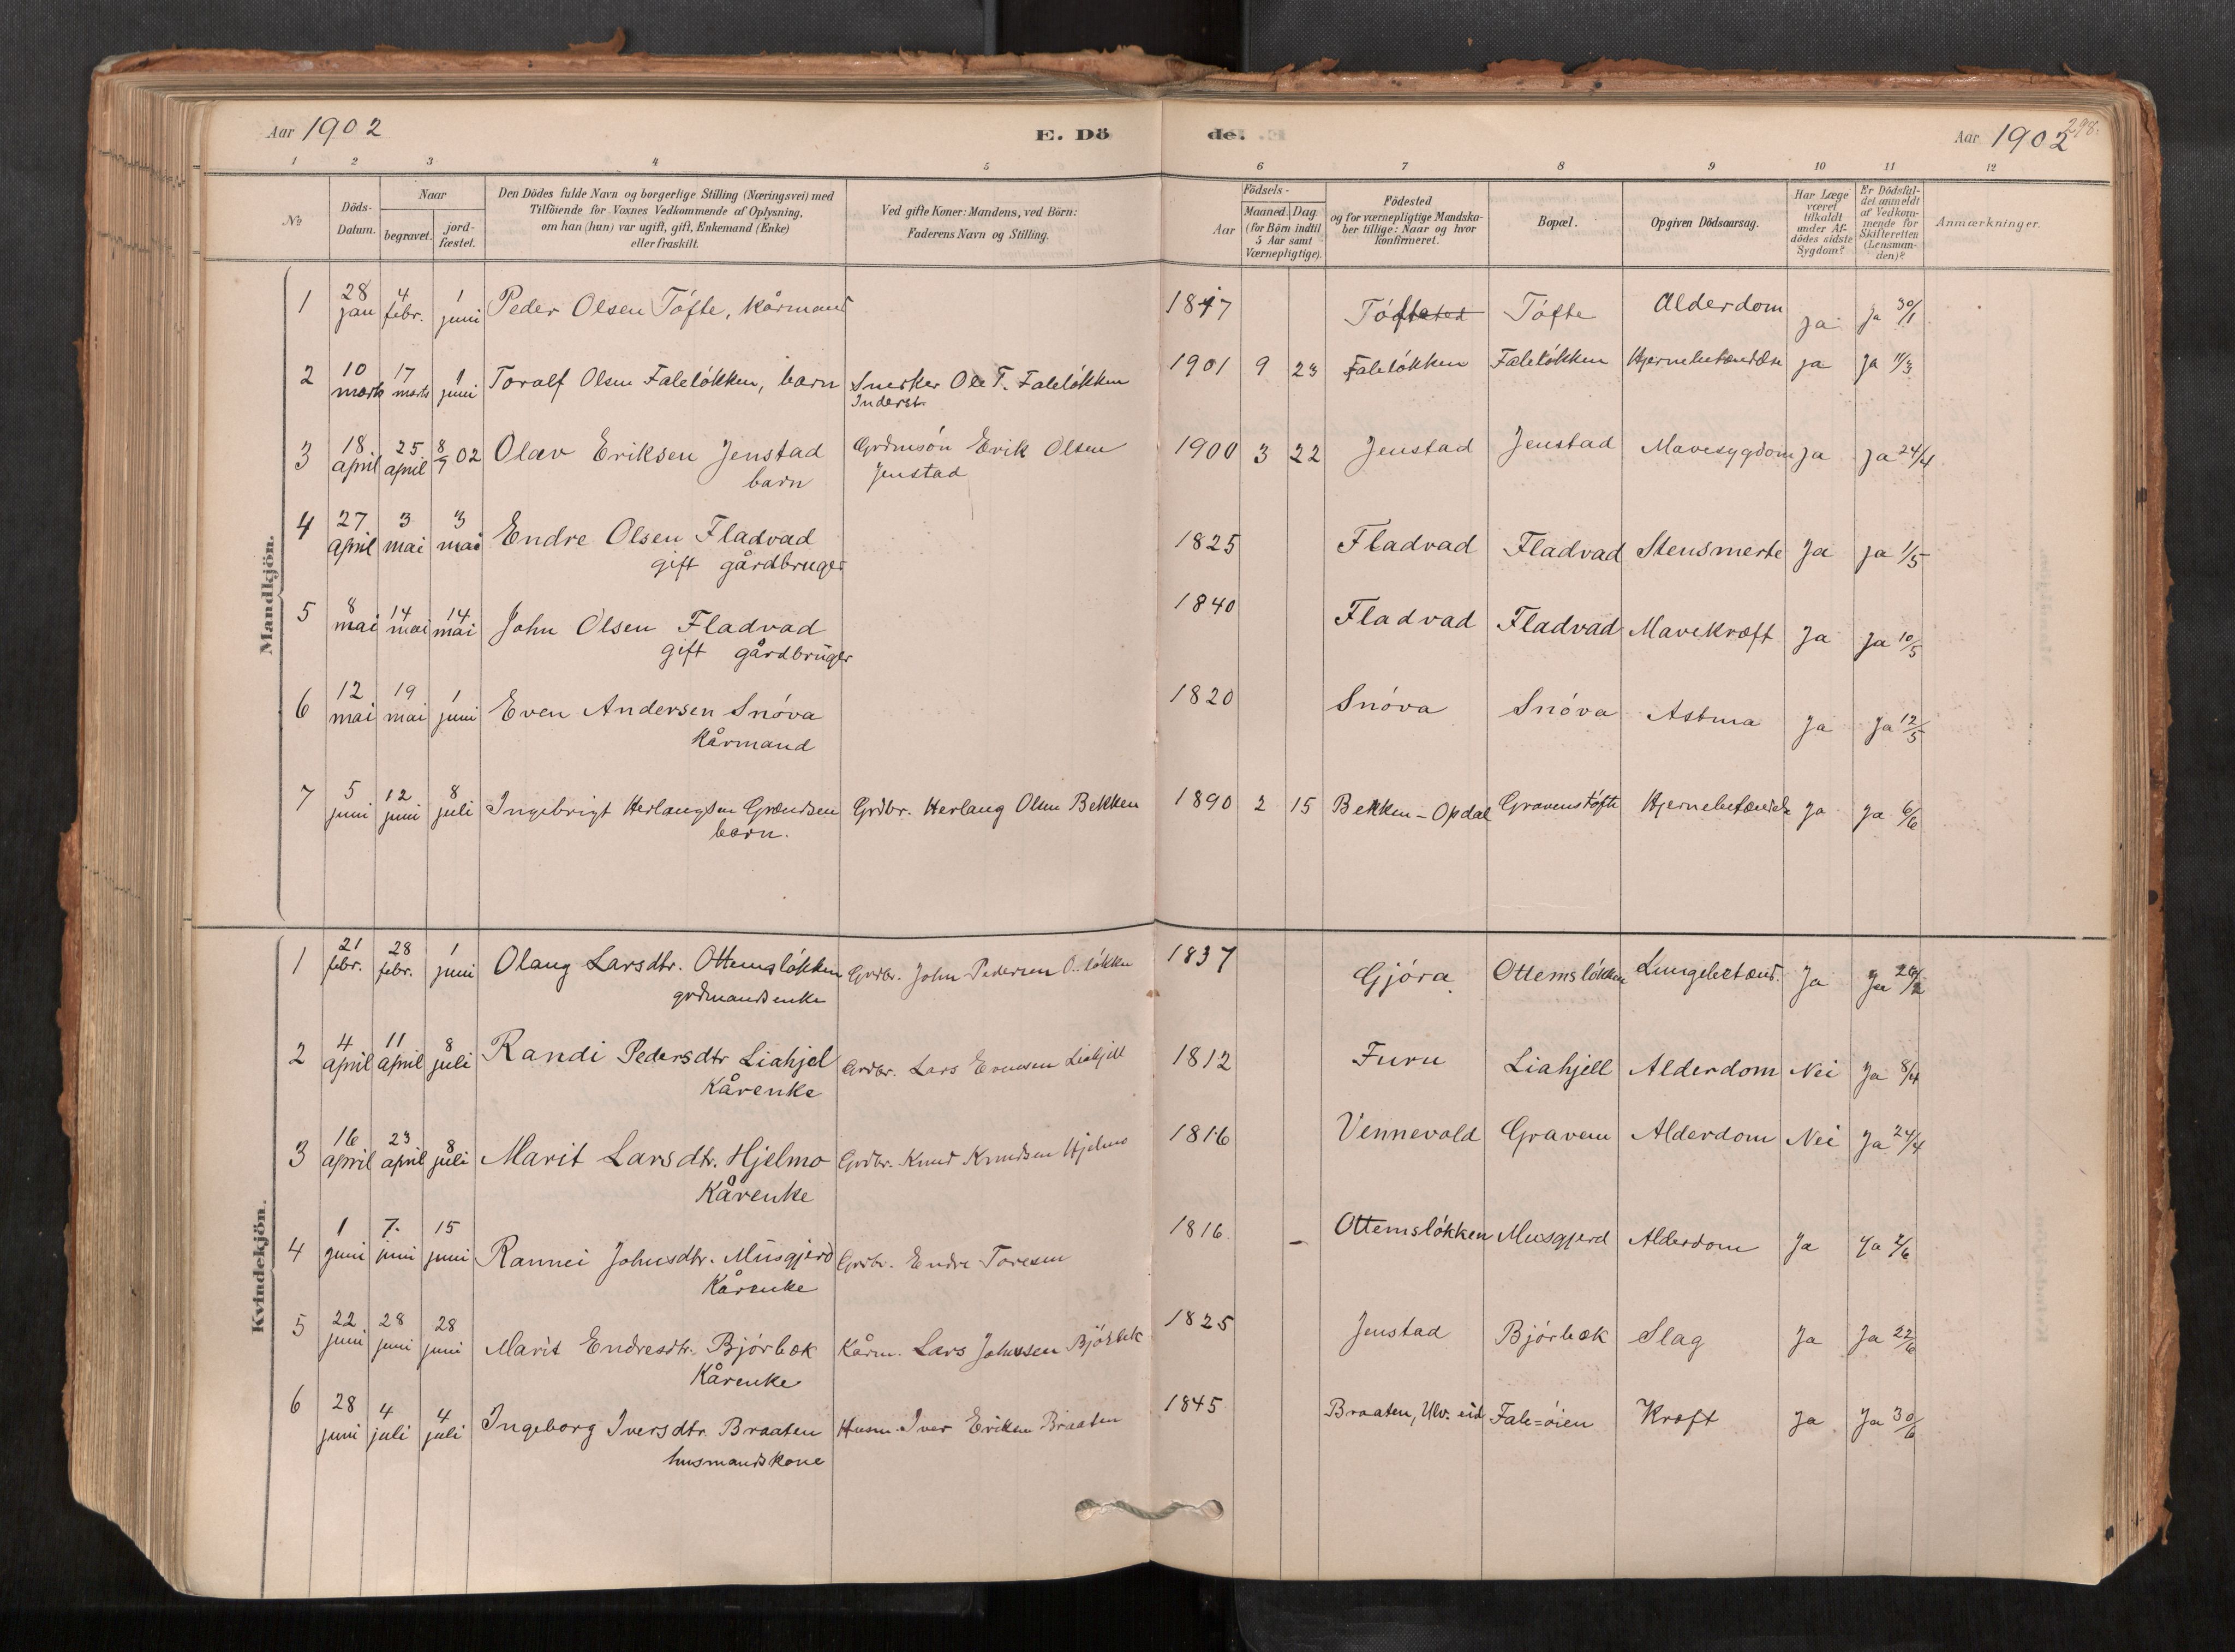 Aar 1902
E. Dö
de.
Aar 1902
298.
1 2 3 4 5 6 7 8 9 10 11 12
No
Döds-Datum.
Naar
begravet.
jord-fæstet.
Den Dödes fulde Navn og borgerlige Stilling (Næringsvei) med
Tilföiende for Voxnes Vedkommende af Oplysning,
om han (hun) var ugift, gift, Enkemand (Enke)
eller fraskilt.
Ved gifte Koner: Mandens, ved Börn:
Faderens Navn og Stilling.
Födsels-
Aar
Maaned. Dag.
(for Börn indtil
5 Aar samt
Værnepligtige).
Födested
og for værnepligtige Mandska-
ber tillige: Naar og hvor
konfirmeret.
Bopæl.
Opgiven Dödsaarsag.
Har Læge
været
tilkaldt
under Af-
dödes sidste
Sygdom?
Er Dödsfal-
det anmeldt
af Vedkom-
mende for
Skifteretten
(Lensman-
den)?
Anmærkninger.
Mandkjön.
1 28 jan 4 febr. 1 juni Peder Olsen Tófte, kårmand 1817 Tófte Tófte Alderdom ja ja 30/1
2 10 marts 17 marts 1 juni Toralf Olsen Faleløkken, barn Snerker Ole T. Faleløkken 1901 9 23 Faleløkken Faleløkken Hjernebetændelse ja ja 11/3
Inderst
3 18. april 25 april 8/7 02 Olav Eriksen Jenstad Grdmsón Erik Olsen 1900 3 22 Jenstad Jenstad Mavesygdom ja ja 24/4
barn Jenstad
4 27. april 3 mai 3 mai Endre Olsen Fladvad 1825 Fladvad Fladvad Stensmerte Ja ja 1/5
gift gårdbruger
5 8 mai 14 mai 14. mai John Olsen Fladvad 1840 Fladvad Fladvad Mavekræft Ja Ja 10/5
gift gårdbruger
6 12 mai 19 mai 1 juni Even Andersen Snóva 1820 Snóva Snóva Astma Ja Ja 12/5
Kårmand
7 5 juni 12 juni 8 juli Ingebrigt Herlaugsen Grdbr. Herlaug Olsen Bekken 1890 2 15 Bekken - Opdal Gravenstófte Ja Ja 6/6
barn.
Kvindekjön.
1 21 febr. 28 febr. 1 juni Olaug Larsdtr. Ottemslókken Grdbr. John Pedersen O.lókken 1837 Gjóra Ottemslókken Lungebetænd. Ja Ja 26/2
grdmandsenke
2 4 april 11 april 8 juli Randi Pedersdtr Liahjel Grdbr. Lars Evensen Liahjell 1812 Furu Liahjell Alderdom Nei Ja 8/4
Kårenke
3 16 april 23 april 8 juli Marit Larsdtr. Hjelmo Grdbr. Knud Knudsen Hjelmo 1816 Vennevold Gravem Alderdom Nei Ja 24/4
Kårenke
4 1 juni 7. juni 15 juni Rannei Johnsdtr. Musgjerd Grdbr. Endre Toresen 1816 - Ottemslókken Musgjerd Alderdom Ja Ja 2/6
Kårenke
5 22 juni 28 juni 28 juni Marit Endresdtr. Bjórbæk Kårm. Lars Johnsen Bjórbæk 1825 Jenstad Bjórbæk Slag Ja Ja 22/6
Kårenke
6 28 juni 4 juli 4 juli Ingeborg Iversdtr. Braaten Husm. Iver Eriksen Braaten 1845 Braaten, Ulv.eid Fale=óien Kræft Ja Ja 30/6
husmandskone